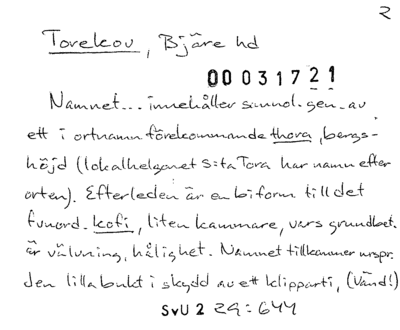 2
Torekov, Bjäre hd
00031721
Namnet... innehåller sannol. gen. av
ett i ortnamn förekommande thora, bergs-
höjd (lokalhelgonet S:ta Tora har namn efter
orten). Efterleden är en biform till det
funord. kofi, liten kammare, vars grundbet.
är välvning, hålighet. Namnet tillkommer urspr.
den lilla bukt i skydd av ett klipparti, (Vänd!)
SvU 2 29:644